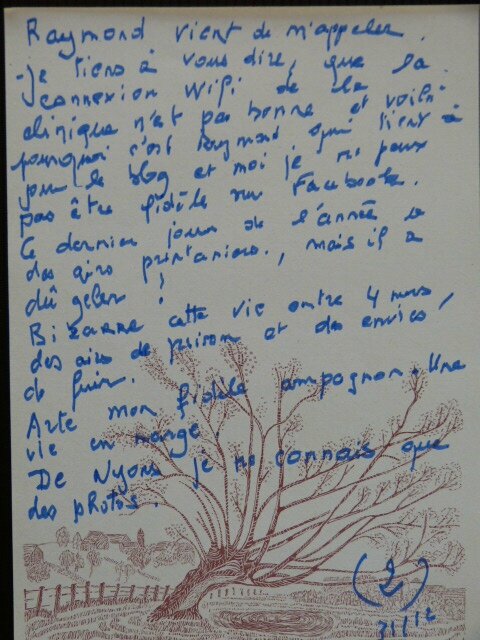 Raymond vient de m'appeler.
- Je tiens à vous dire, que la
connexion Wifi de la
clinique n'est pas bonne et voilà
pourquoi c'est Raymond qui tient à
jour le blog et moi je ne peux
pas être fidèle sur Facebook.
Ce dernier jour de l'année a
des airs printaniers, mais il a
dû geler !
Bizarre cette vie entre 4 murs,
des airs de prison et des envies
de fuir.
Arte mon fidèle compagnon. Une
île en
De Nyons je ne connais que
des photos.
(2)
31/12